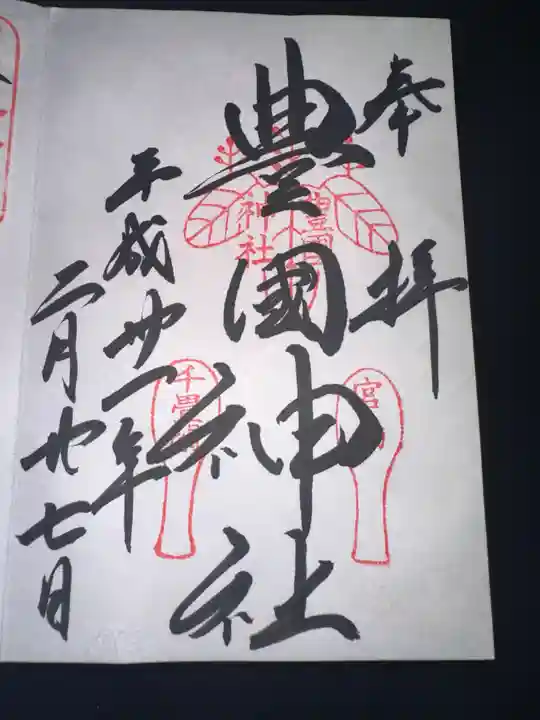 奉拝
豊國神社
豐國神社
宮
千畳閣
平成廿一年
二月廿七日